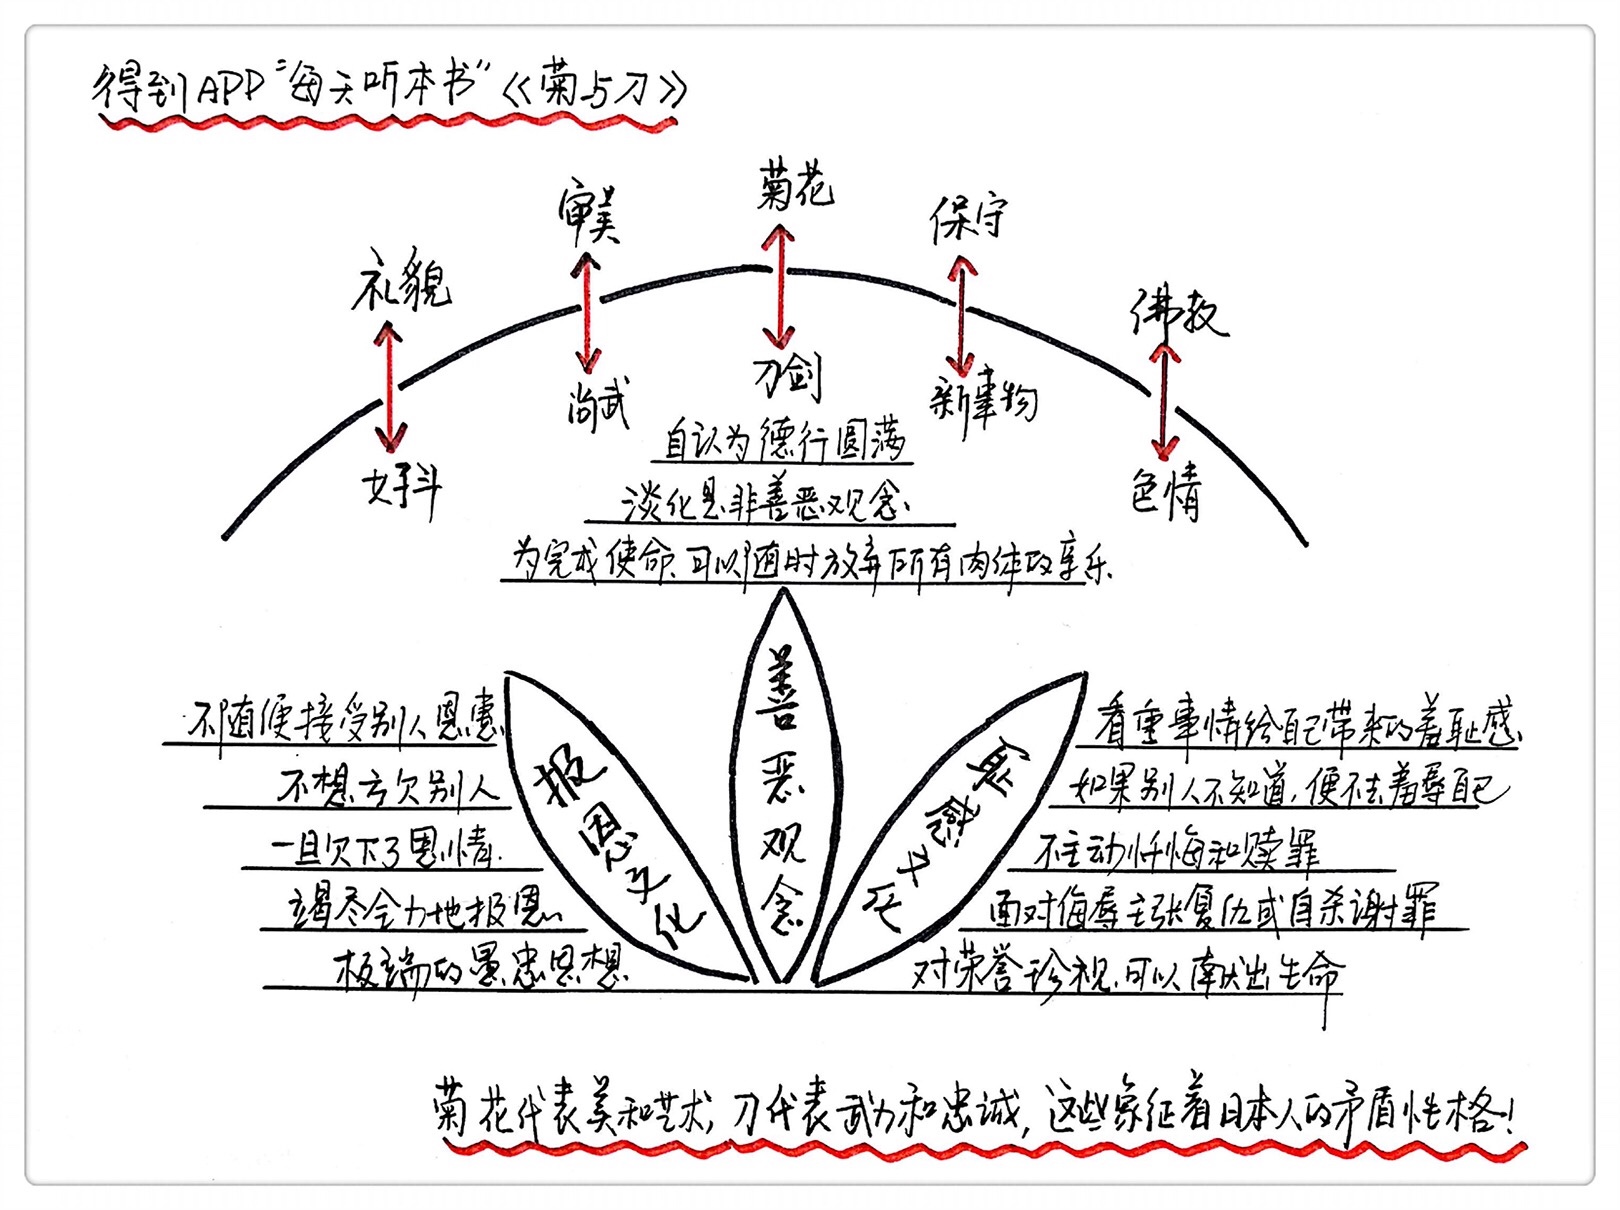 得到APP“每天听本书”《菊与刀》
礼貌
审美
菊花
保守
佛教
好斗
尚武
刀剑
新事物
色情
自认为德行圆满
淡化是非善恶观念
为完成使命、可以随时放弃所有肉体的享乐
善恶观念
报恩文化
不随便接受别人恩惠
不想亏欠别人
一旦欠下了恩情
竭尽全力地报恩
极端的愚忠思想
耻感文化
看重事情给自己带来的羞耻感
如果别人不知道,便不去羞辱自己
不主动忏悔和赎罪
面对侮辱主张复仇或自杀谢罪
对荣誉珍视,可以献出生命
菊花代表美和艺术,刀代表武力和忠诚,这些象征着日本人的矛盾性格!